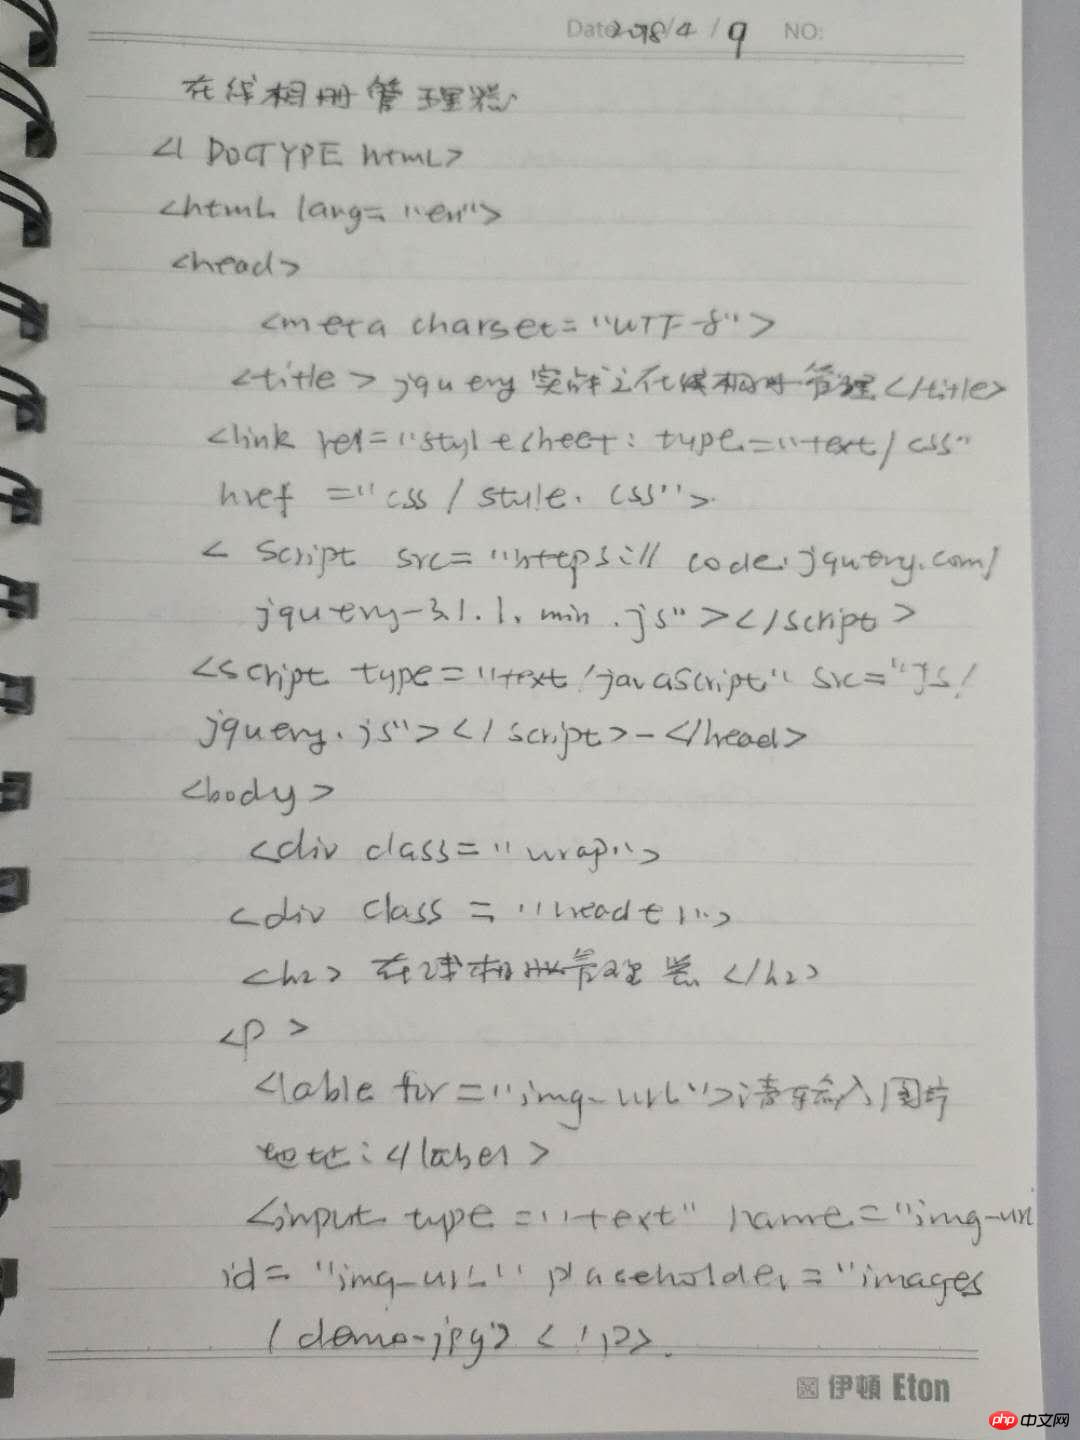 Date 2018/4/9 NO:
在线相册管理器
<! DOCTYPE html>
<html lang="en">
<head>
<meta charset="UTF-8">
<title>jquery实战之在线相册管理</title>
<link rel="stylesheet: type="text/css"
href="css/style.css">
<script src="https://code.jquery.com/
jquery-3.1.1.min.js"></script>
<script type="text/javascript" src="js/
jquery.js"></script>-</head>
<body>
<div class="wrap">
<div class="header">
<h2>在线相册管理器</h2>
<p>
<lable for="img-url">请输入图片
地址:</label>
<input type="text" name="img-url
id="img-url" placeholder="images
/demo-jpg"> </p>.
伊頓 Eton
php 中文网